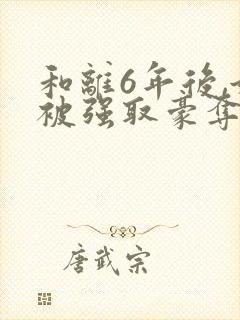 和離6年後
被强取豪奪
唐武宗